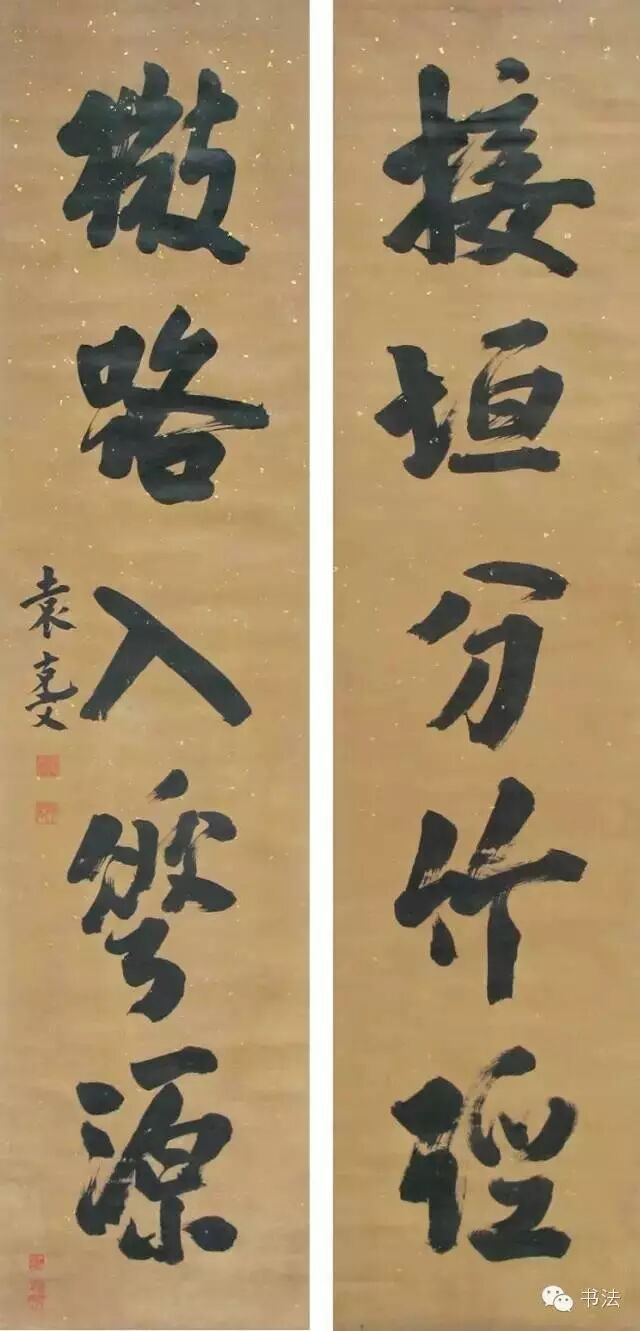 接垣分竹徑
微路入源
袁克文
书法